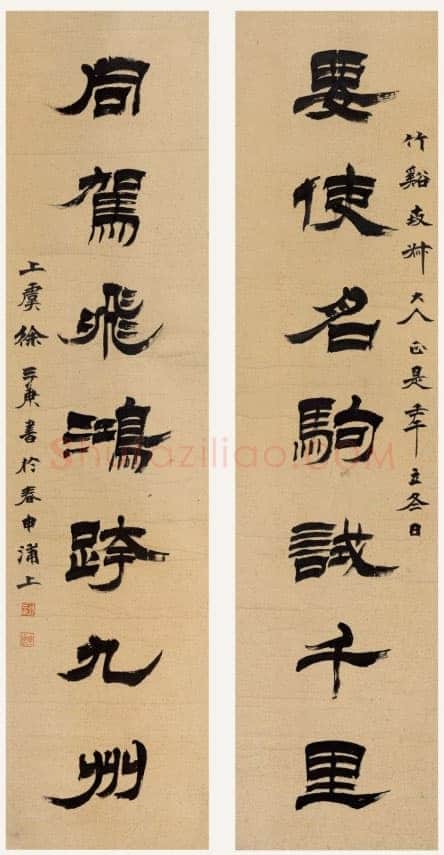 竹谿大人正是壬午立冬日
要使名駒試千里
同駕飛鴻跨九州
上虞徐三庚書於春申浦上
shufaziliao.com